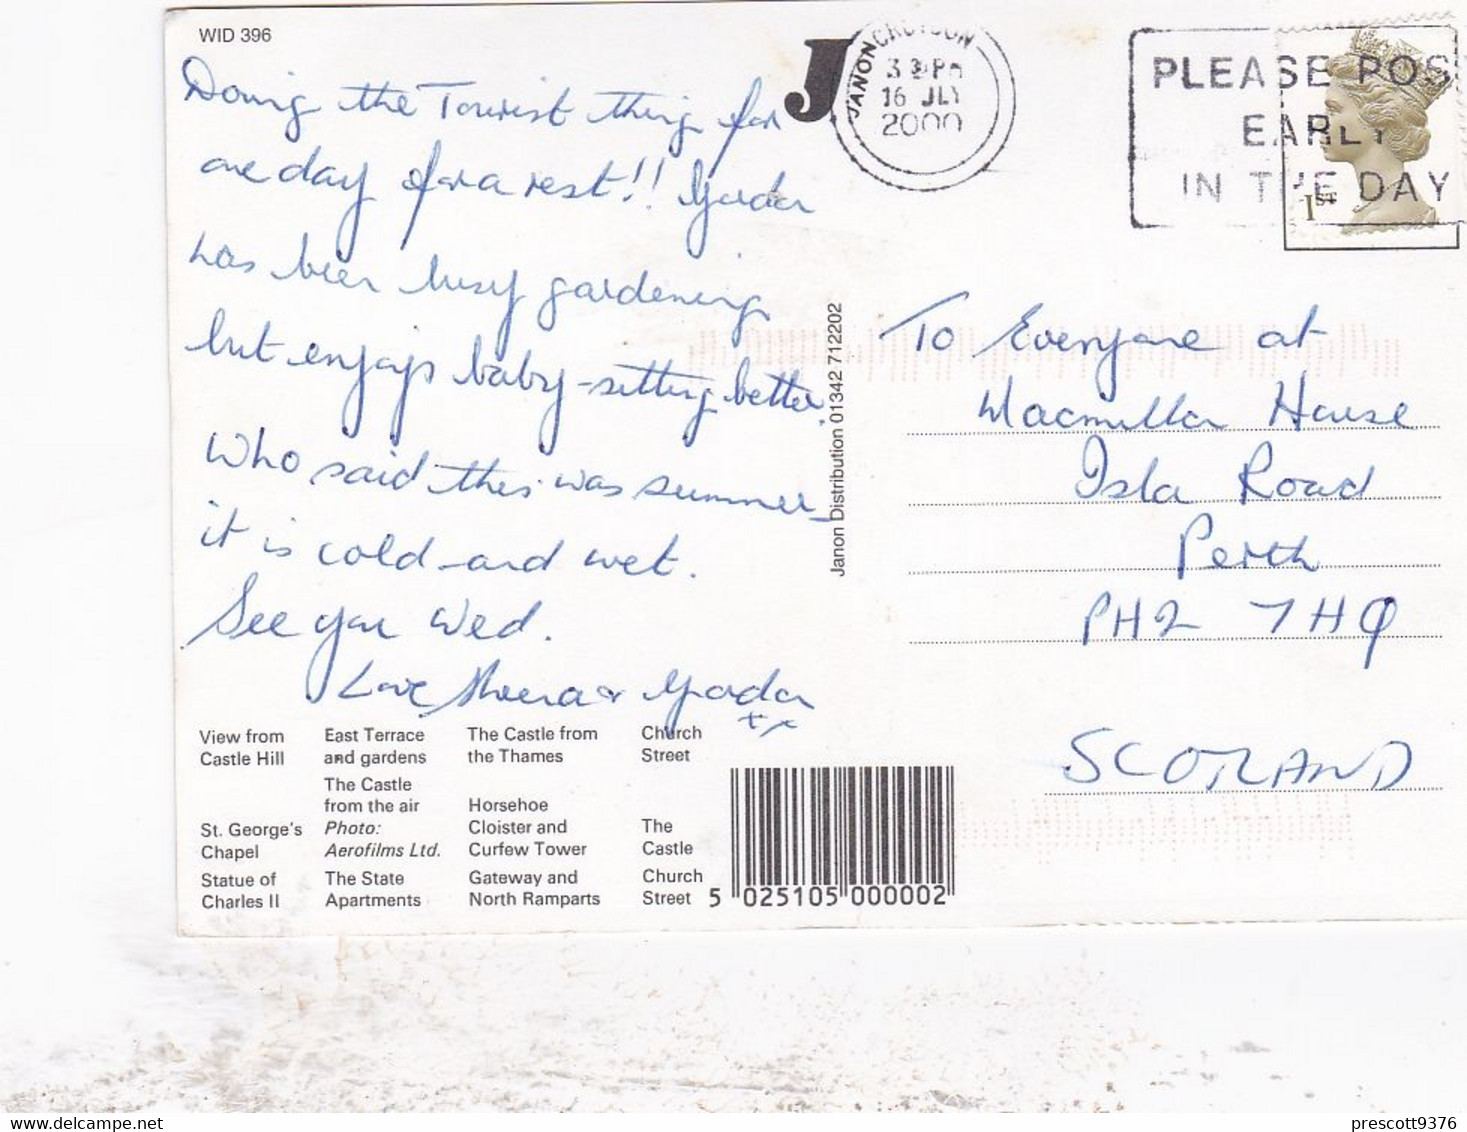 WID 396
Doing the Tourist thing for
one day for a rest!! Gordon
has been busy gardening
but enjoys baby-sitting better.
Who said this was summer –
it is cold and wet.
See you Wed.
Love & Gordon
xx
J
JANON
CROYDON
16 JLY
2000
PLEASE POS
EARLY
IN THE DAY
1ST
Janon Distribution 01342 712202
To Everyone at
Macmillan House
Isla Road
Perth
PH2 7HQ
SCOTLAND
View from
Castle Hill
East Terrace
and gardens
The Castle from
the Thames
Church
Street
The Castle
from the air
Photo:
Aerofilms Ltd.
St. George's
Chapel
Horsehoe
Cloister and
Curfew Tower
The
Castle
Statue of
Charles II
The State
Apartments
Gateway and
North Ramparts
Church
Street
5 025105 000002
delcampe.net
prescott9376